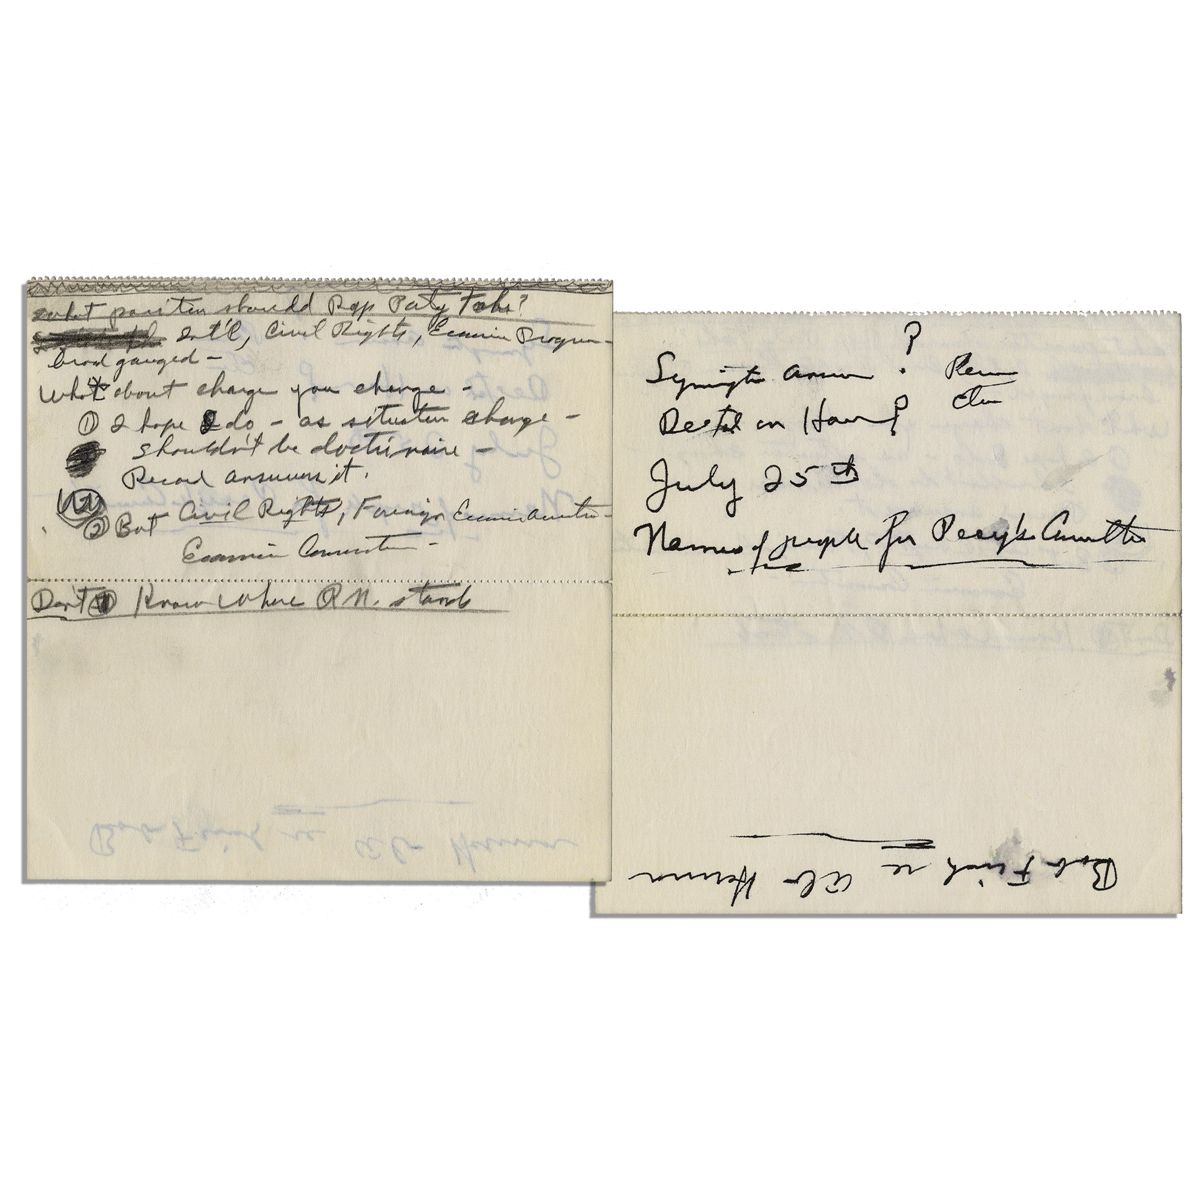 What position should Rep Party Take?
Int'l, Civil Rights, Economic Program -
broad gauged -
What about charge you change -
① I hope I do - as situation change -
Shouldn't be doctrinaire -
Record answers it.
② But Civil Rights, Foreign Economic
Economic Conservative -
Don't Know where R.N. stands
?
Symington answer ?
on ?
July 25th
Names of people for Percy's Committee
Bob Finch re